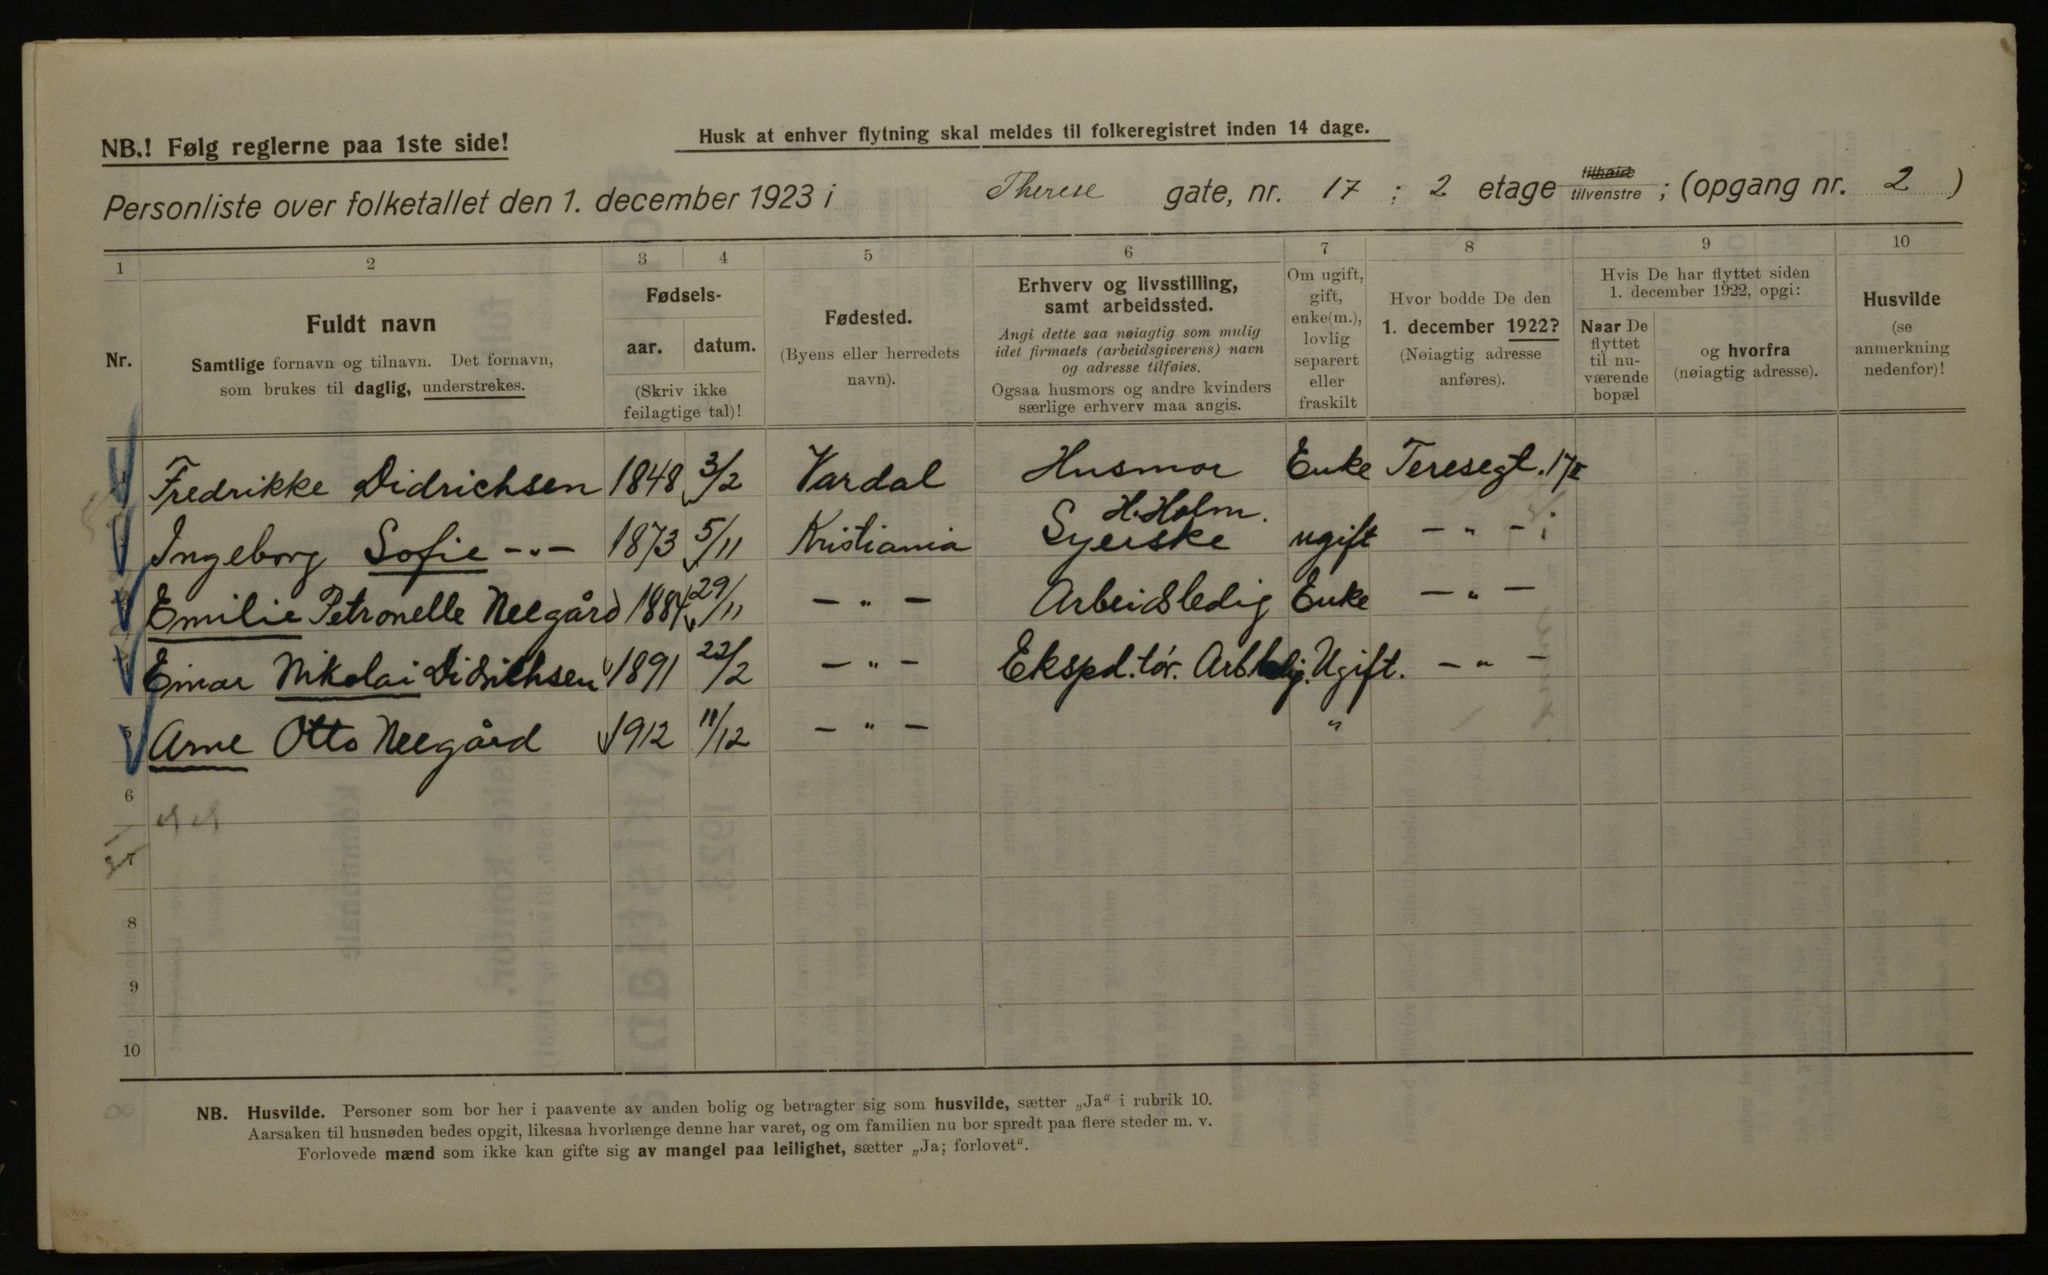 NB.! Følg reglerne paa 1ste side!
Husk at enhver flytning skal meldes til folkeregistret inden 14 dage.
Personliste over folketallet den 1. december 1923 i Therese gate, nr. 17 ; 2 etage tilhøire tilvenstre ; (opgang nr. 2 )
1 2 3 4 5 6 7 8 9 10
Nr.
Fuldt navn
Samtlige fornavn og tilnavn. Det fornavn,
som brukes til daglig, understrekes.
Fødsels-
aar. datum.
(Skriv ikke
feilagtige tal)!
Fødested.
(Byens eller herredets
navn).
Erhverv og livsstilling,
samt arbeidssted.
Angi dette saa nøiagtig som mulig
idet firmaets (arbeidsgiverens) navn
og adresse tilføies.
Ogsaa husmors og andre kvinders
særlige erhverv maa angis.
Om ugift,
gift,
enke(m.),
lovlig
separert
eller
fraskilt
Hvor bodde De den
1. december 1922?
(Nøiagtig adresse
anføres).
Hvis De har flyttet siden
1. december 1922, opgi:
Naar De
flyttet
til nu-
værende
bopæl
og hvorfra
(nøiagtig adresse).
Husvilde
(se
anmerkning
nedenfor)!
Fredrikke Didrichsen 1848 3/2 Vardal Husmor Enke Teresegt. 17 II
Ingeborg Sofie -"- 1873 5/11 Kristiania H. Holm. Syerske ugift - " -
Emilie Petronelle Neegård 1884 29/11 - " - Arbeidsledig Enke - " -
Einar Nikolai Didrichsen 1891 22/2 - " - Ekspd.tør. Ugift. - " -
Arne Otto Neegård 1912 11/12 - " - "
6
7
8
9
10
NB. Husvilde. Personer som bor her i paavente av anden bolig og betragter sig som husvilde, sætter „Ja“ i rubrik 10.
Aarsaken til husnøden bedes opgit, likesaa hvorlænge denne har varet, og om familien nu bor spredt paa flere steder m. v.
Forlovede mænd som ikke kan gifte sig av mangel paa leilighet, sætter „Ja; forlovet“.